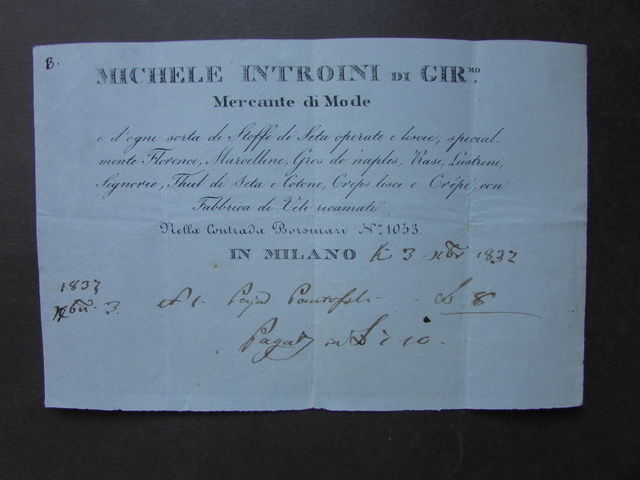 B.
MICHELE INTROINI DI GIR.MO
Mercante di Mode
e d'ogni sorta di Stoffe di Seta operate e liscie, special-
mente Florence, Marcelline, Gros de naples, Rasi, Lustrini,
Signorie, Thul di Seta e Cotone, Creps lisci e Crêpé, con
Fabbrica di Veli ricamati
Nella Contrada Borsinari N.º 1053.
IN MILANO li 3 - 9bre 1837
1837
9bre 3. N 1. Pajo Pantofole £ 8
Pagato in £ 7 10.